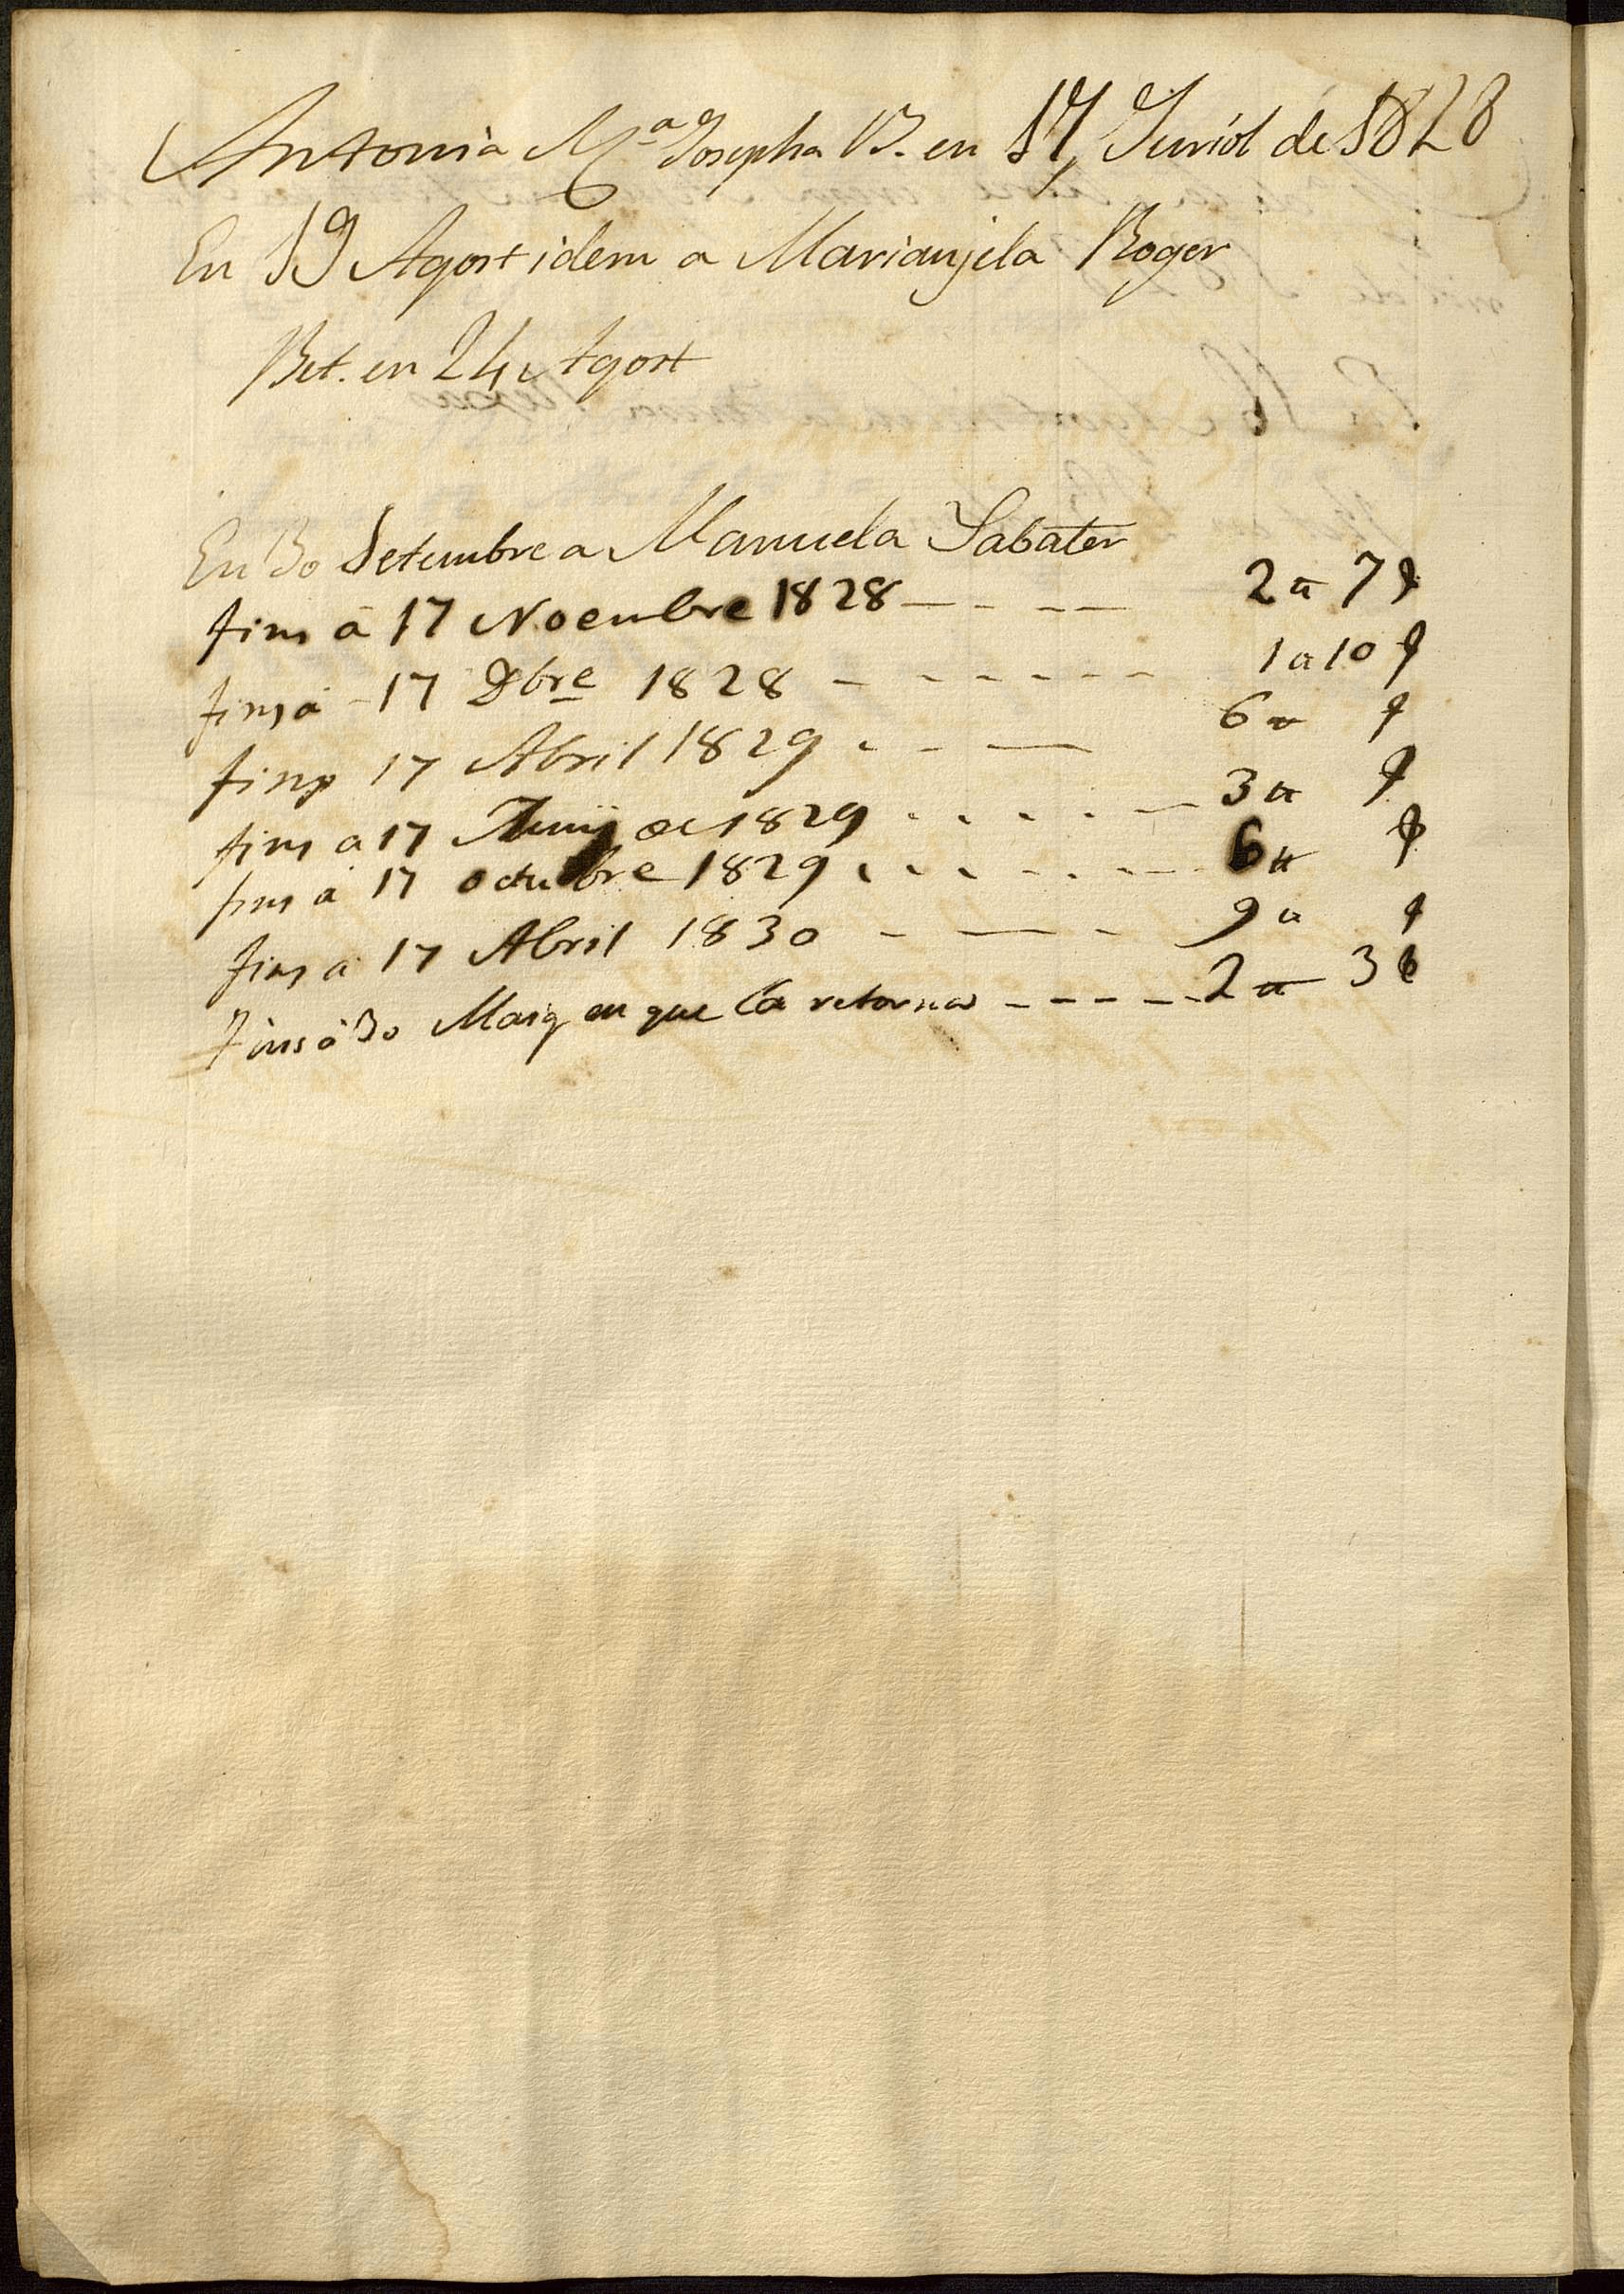 Antonia Mª Josepha B. en 17, Juriol de 1828
En 19 Agost idem a Marianjela Roger
Ret. en 24 Agost
En 30 Setembre a Manuela Sabater
fins á 17 Noembre 1828 — - — — 2 tt 7 ß
fins á - 17 Dbre 1828 - - - - - - - 1 tt 10 ß
fins 17 Abril 1829 - - — 6 tt ß
fins a 17 Juny de 1829 . . . . . — 3 tt ß
fins á 17 octubre 1829 . . . - . - — 6 tt ß
fins á 17 Abril 1830 - — - 9 tt ß
Fins á 30 Maig en que la retorna - - - - - 2 tt 3 ß